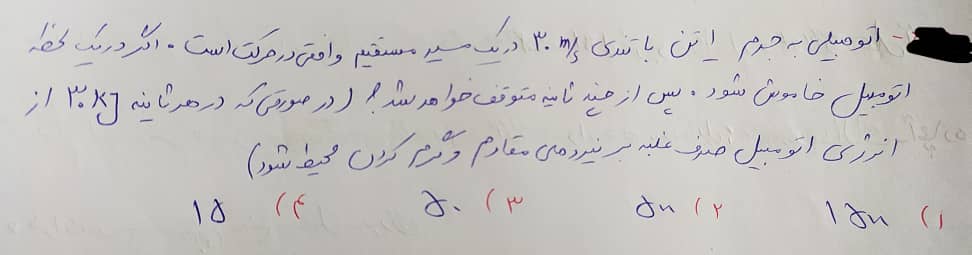 - اتومبیلی به جرم ۱ تن با تندی ۳۰ m/s در یک مسیر مستقیم و افقی در حرکت است. اگر در یک لحظه
اتومبیل خاموش شود. پس از چند ثانیه متوقف خواهد شد؟ (در صورتی که در هر ثانیه ۳۰ kJ از
انرژی اتومبیل صرف غلبه بر نیروهای مقاوم و گرم کردن محیط شود)
۱) ۱۵n ۲) ۵n ۳) ۵۰ ۴) ۱۵